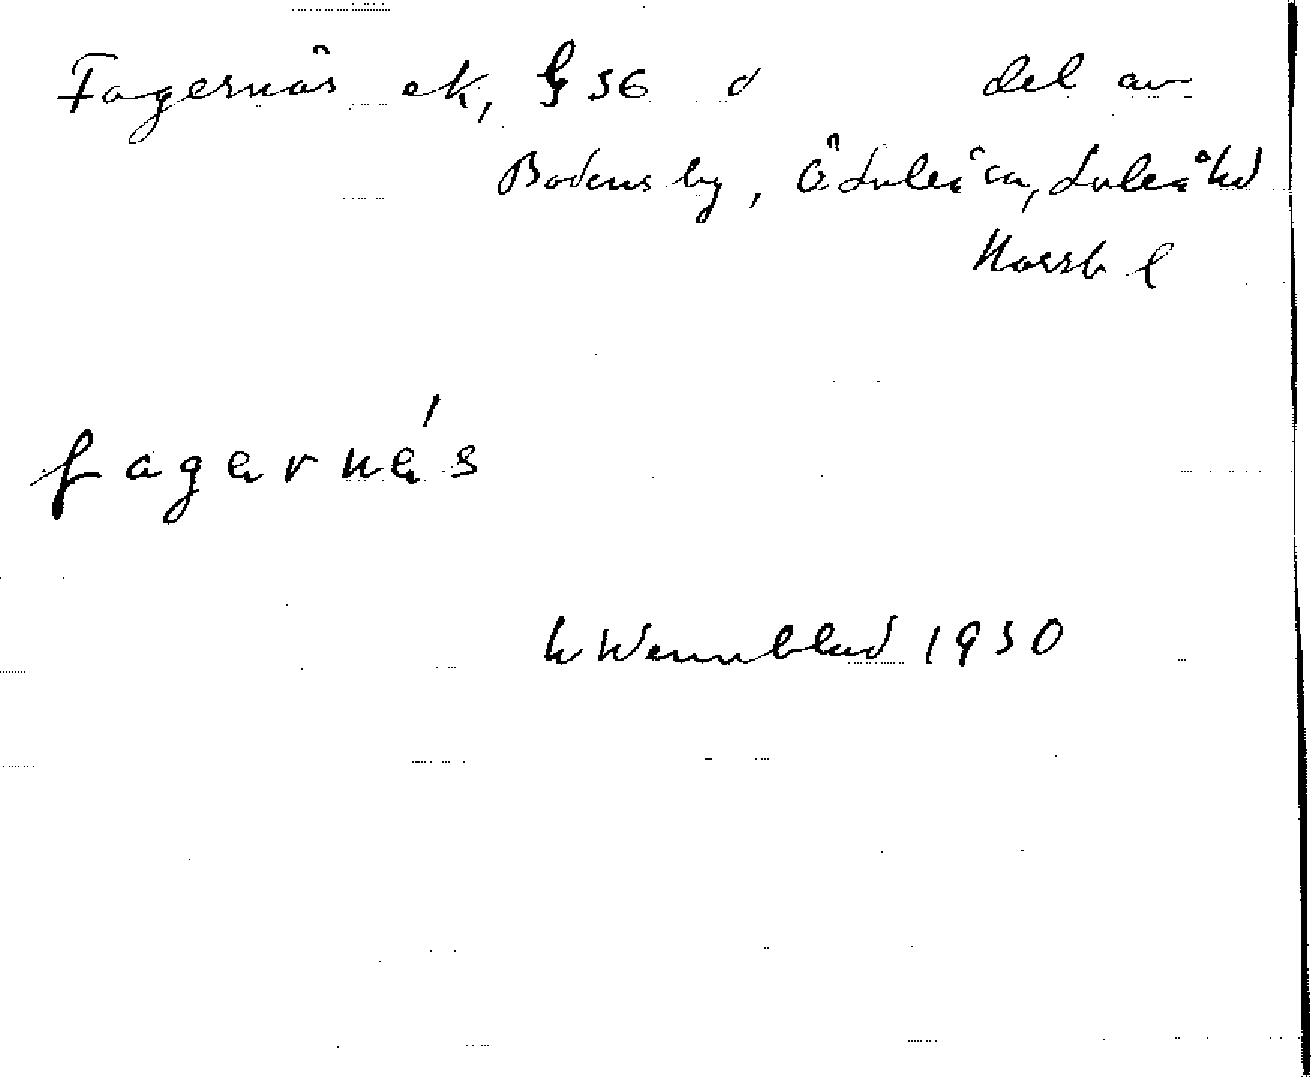 Fagernäs ek, § 36 d del av
Bodens by, Ö Luleå sn, Luleå hd
Norrb l
fagernäs
H Wennblad 1930